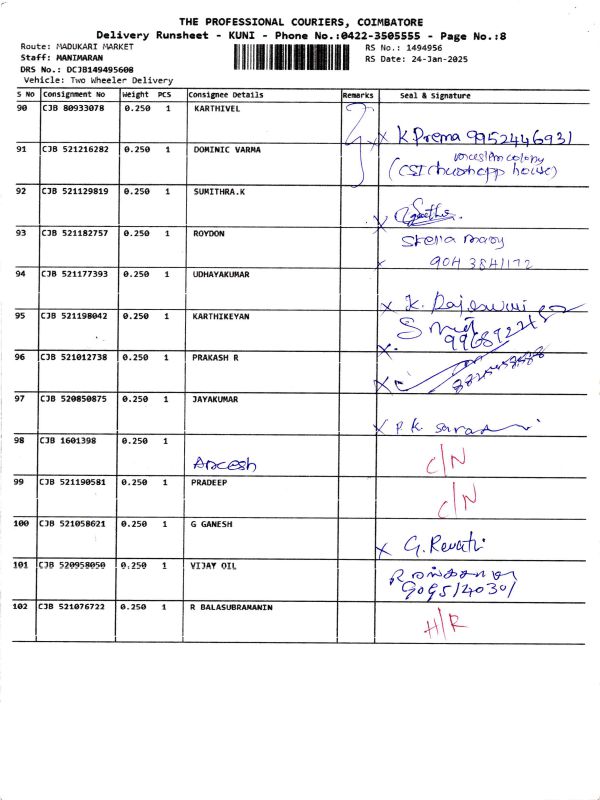 THE PROFESSIONAL COURIERS, COIMBATORE
Delivery Runsheet - KUNI - Phone No.:0422-3505555 - Page No.:8
Route: MADUKARI MARKET RS No.: 1494956
Staff: MANIMARAN RS Date: 24-Jan-2025
DRS No.: DCJB149495608
Vehicle: Two Wheeler Delivery
S No Consignment No Weight PCS Consignee Details Remarks Seal & Signature
90 CJB 80933078 0.250 1 KARTHIVEL
x K Prema 9952446931
91 CJB 521216282 0.250 1 DOMINIC VARMA
muslim colony
house)
92 CJB 521129819 0.250 1 SUMITHRA.K
x
93 CJB 521182757 0.250 1 ROYDON
Stella mary
x 9043841172
94 CJB 521177393 0.250 1 UDHAYAKUMAR
x K. Rajeswari
95 CJB 521198042 0.250 1 KARTHIKEYAN
x
96 CJB 521012738 0.250 1 PRAKASH R
x
97 CJB 520850875 0.250 1 JAYAKUMAR
x P.K.
98 CJB 1601398 0.250 1
C/N
99 CJB 521190581 0.250 1 PRADEEP
C/N
100 CJB 521058621 0.250 1 G GANESH
x G. Revathi
101 CJB 520958050 0.250 1 VIJAY OIL
9095140301
102 CJB 521076722 0.250 1 R BALASUBRAMANIN
H/R